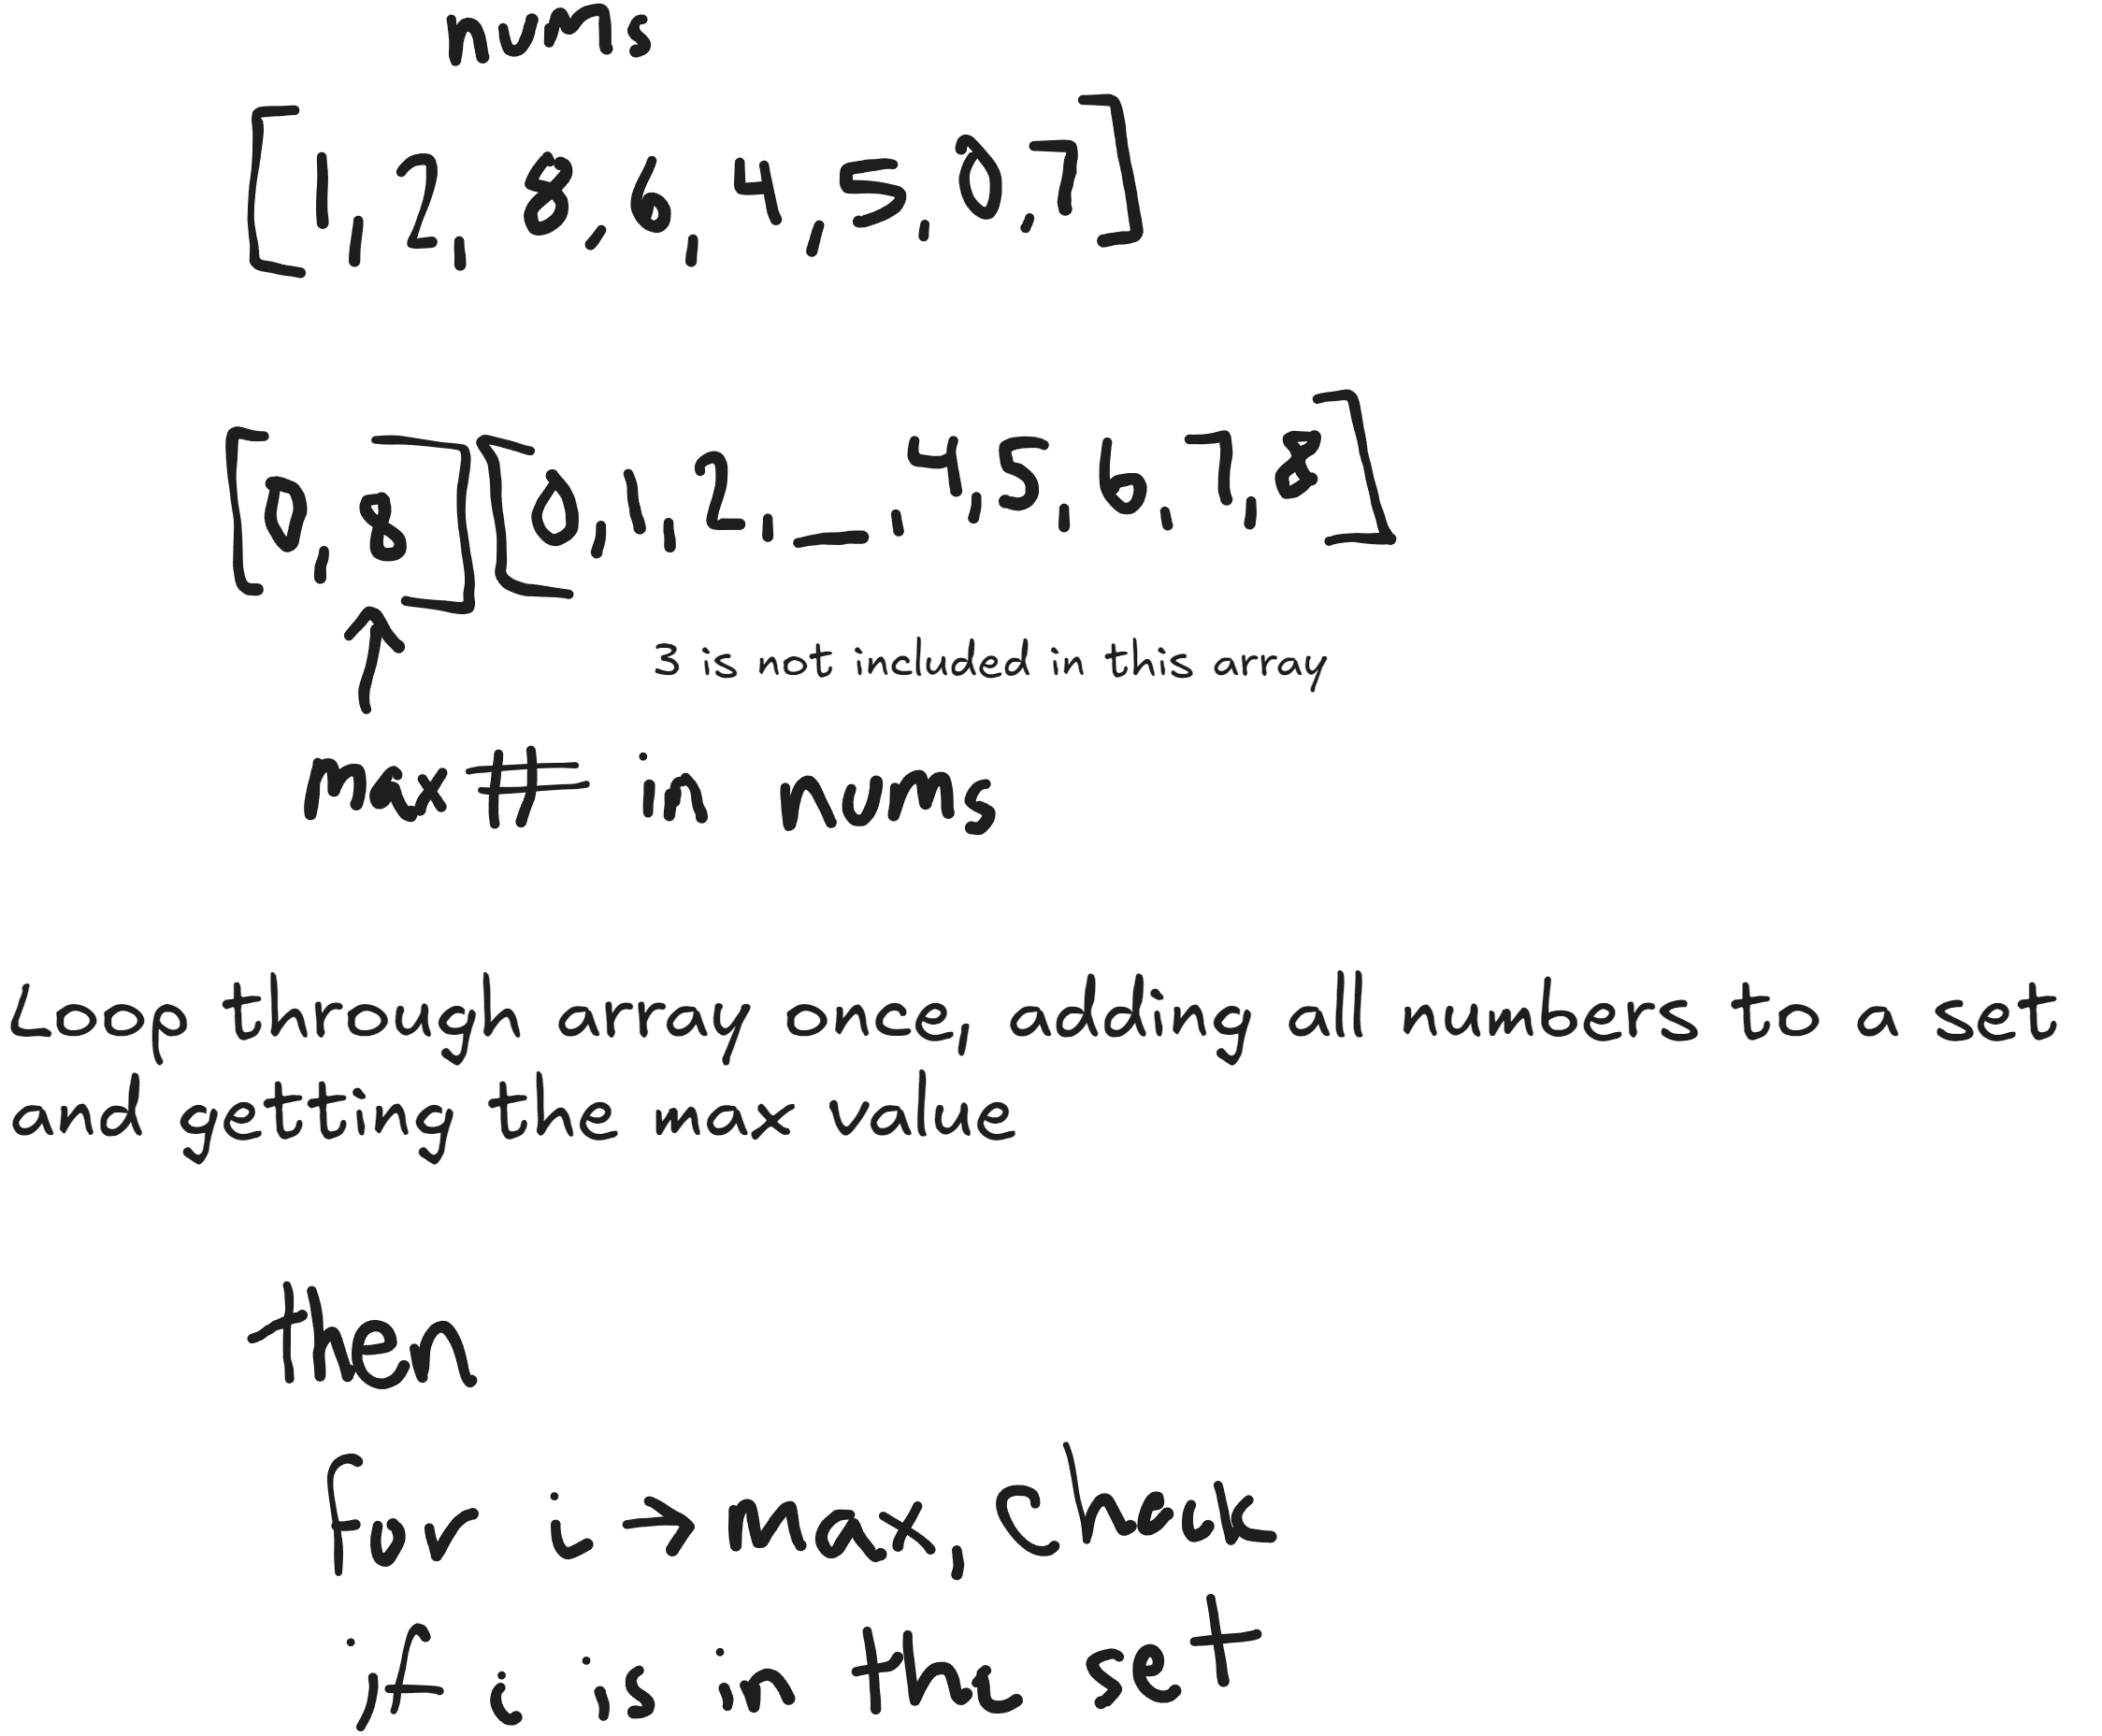 nums
[1, 2, 8, 6, 4, 5, 0, 7]
[0, 8] [0, 1, 2, _, 4, 5, 6, 7, 8]
3 is not included in this array
max # in nums
Loop through array once, adding all numbers to a set
and getting the max value
then
for i → max, check
if i is in the set